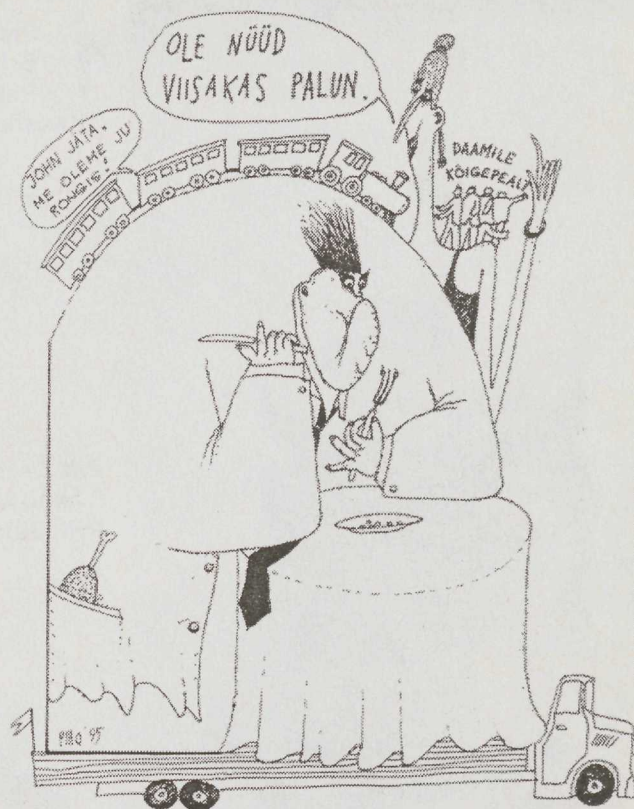 OLE NÜÜD
VIISAKAS PALUN.
JOHN JÄTA,
ME OLEME JU
RONGIS!
DAAMILE
KÕIGEPEALT